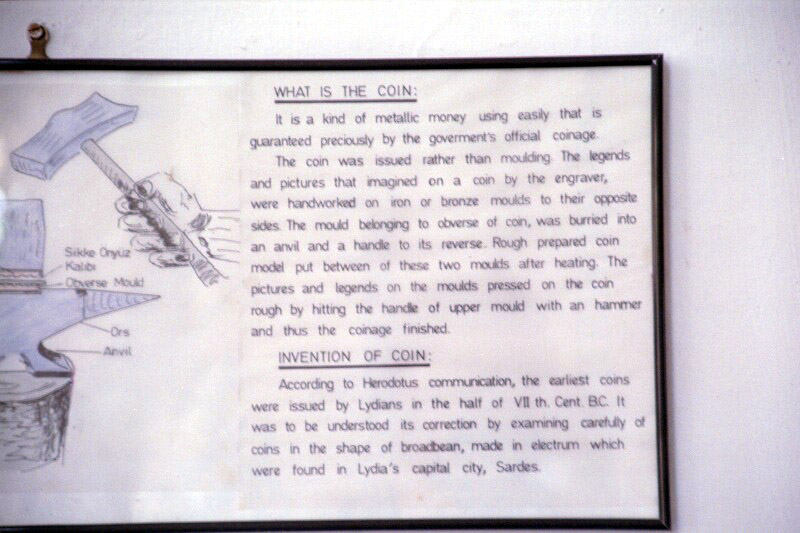 WHAT IS THE COIN:
It is a kind of metallic money using easily that is
guaranteed preciously by the goverment's official coinage.
The coin was issued rather than moulding. The legends
and pictures that imagined on a coin by the engraver,
were handworked on iron or bronze moulds to their opposite
sides. The mould belonging to obverse of coin, was burried into
an anvil and a handle to its reverse. Rough prepared coin
model put between of these two moulds after heating. The
pictures and legends on the moulds pressed on the coin
rough by hitting the handle of upper mould with an hammer
and thus the coinage finished.
INVENTION OF COIN:
According to Herodotus communication, the earliest coins
were issued by Lydians in the half of VII th. Cent. B.C. It
was to be understood its correction by examining carefully of
coins in the shape of broadbean, made in electrum which
were found in Lydia's capital city, Sardes.
Sikke Önyüz
Kalıbı
Obverse Mould
Örs
Anvil